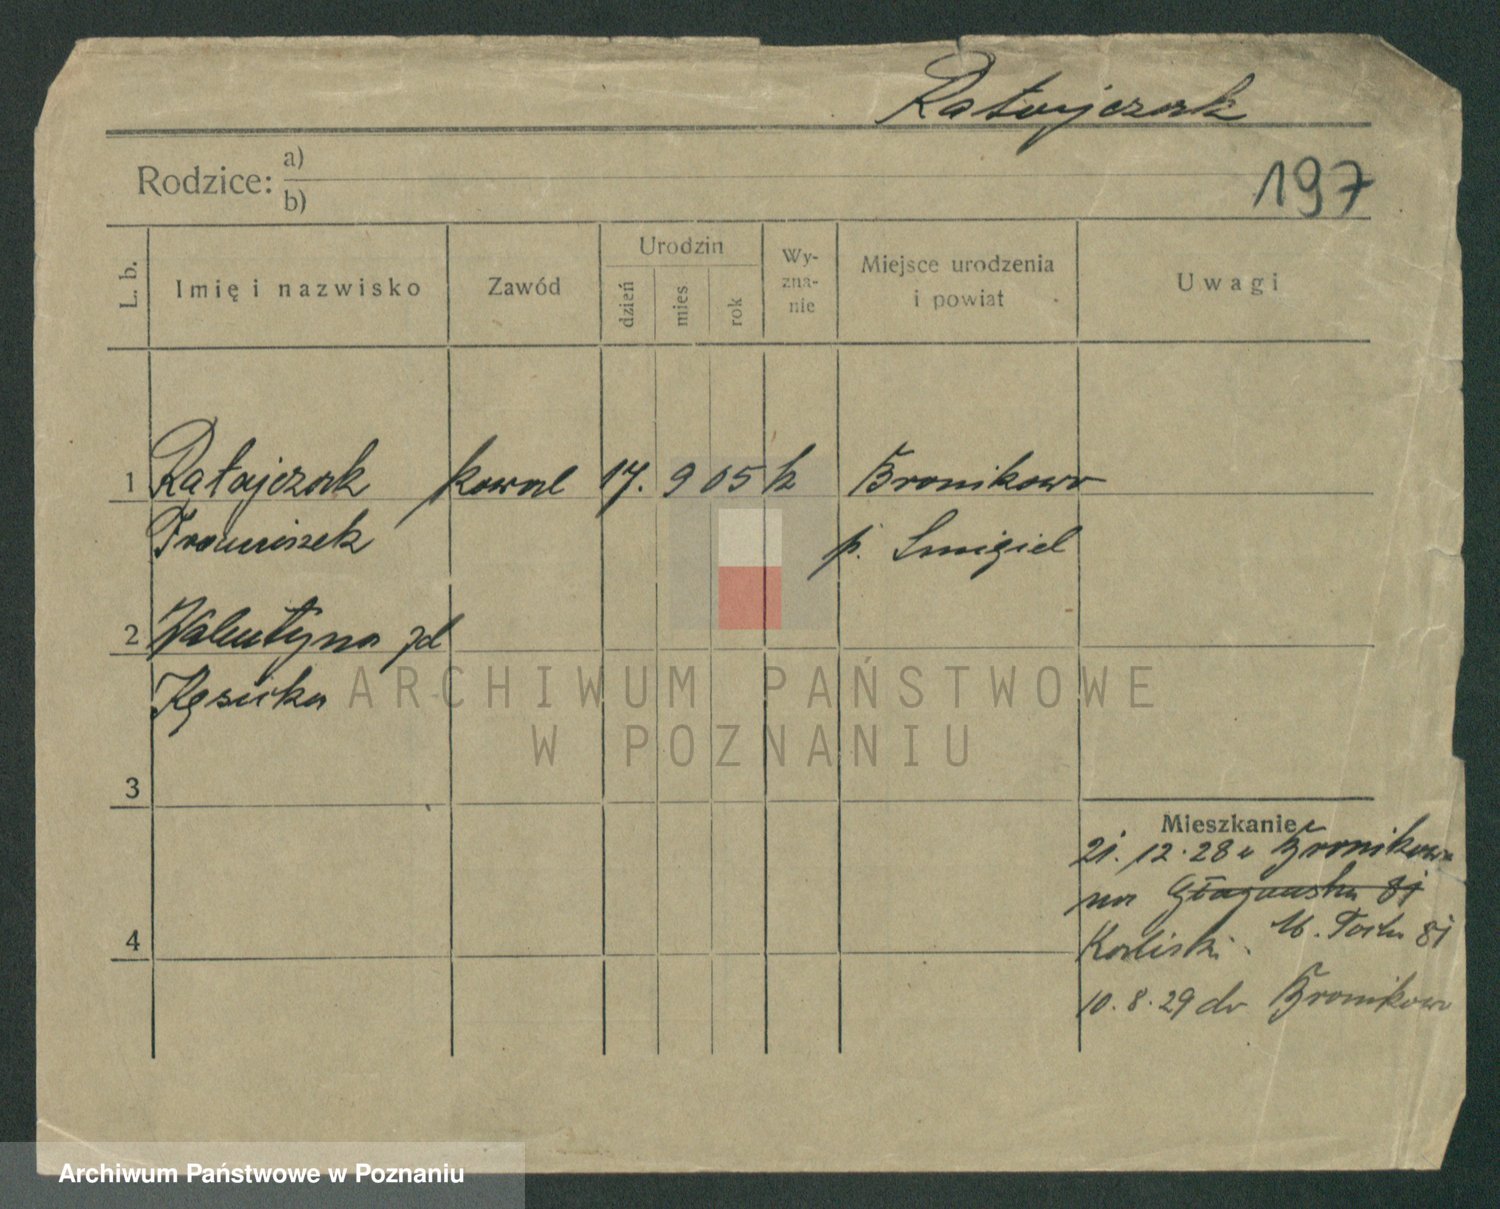 Ratajczak
197
Rodzice: a)
b)
L. b. Imię i nazwisko Zawód Urodzin dzień mies rok Wyznanie Miejsce urodzenia i powiat Uwagi
1 Ratajczak kowal 17. 9 05 k Bronikowo
Franciszek p. Śmigiel
2 Walentyna zd
Kęsicka
ARCHIWUM PAŃSTWOWE
W POZNANIU
3
Mieszkanie
21. 12. 28 z Bronikowa
na Głogowska 81
4 M. Focha 81
10. 8. 29 do Bronikowo
Archiwum Państwowe w Poznaniu